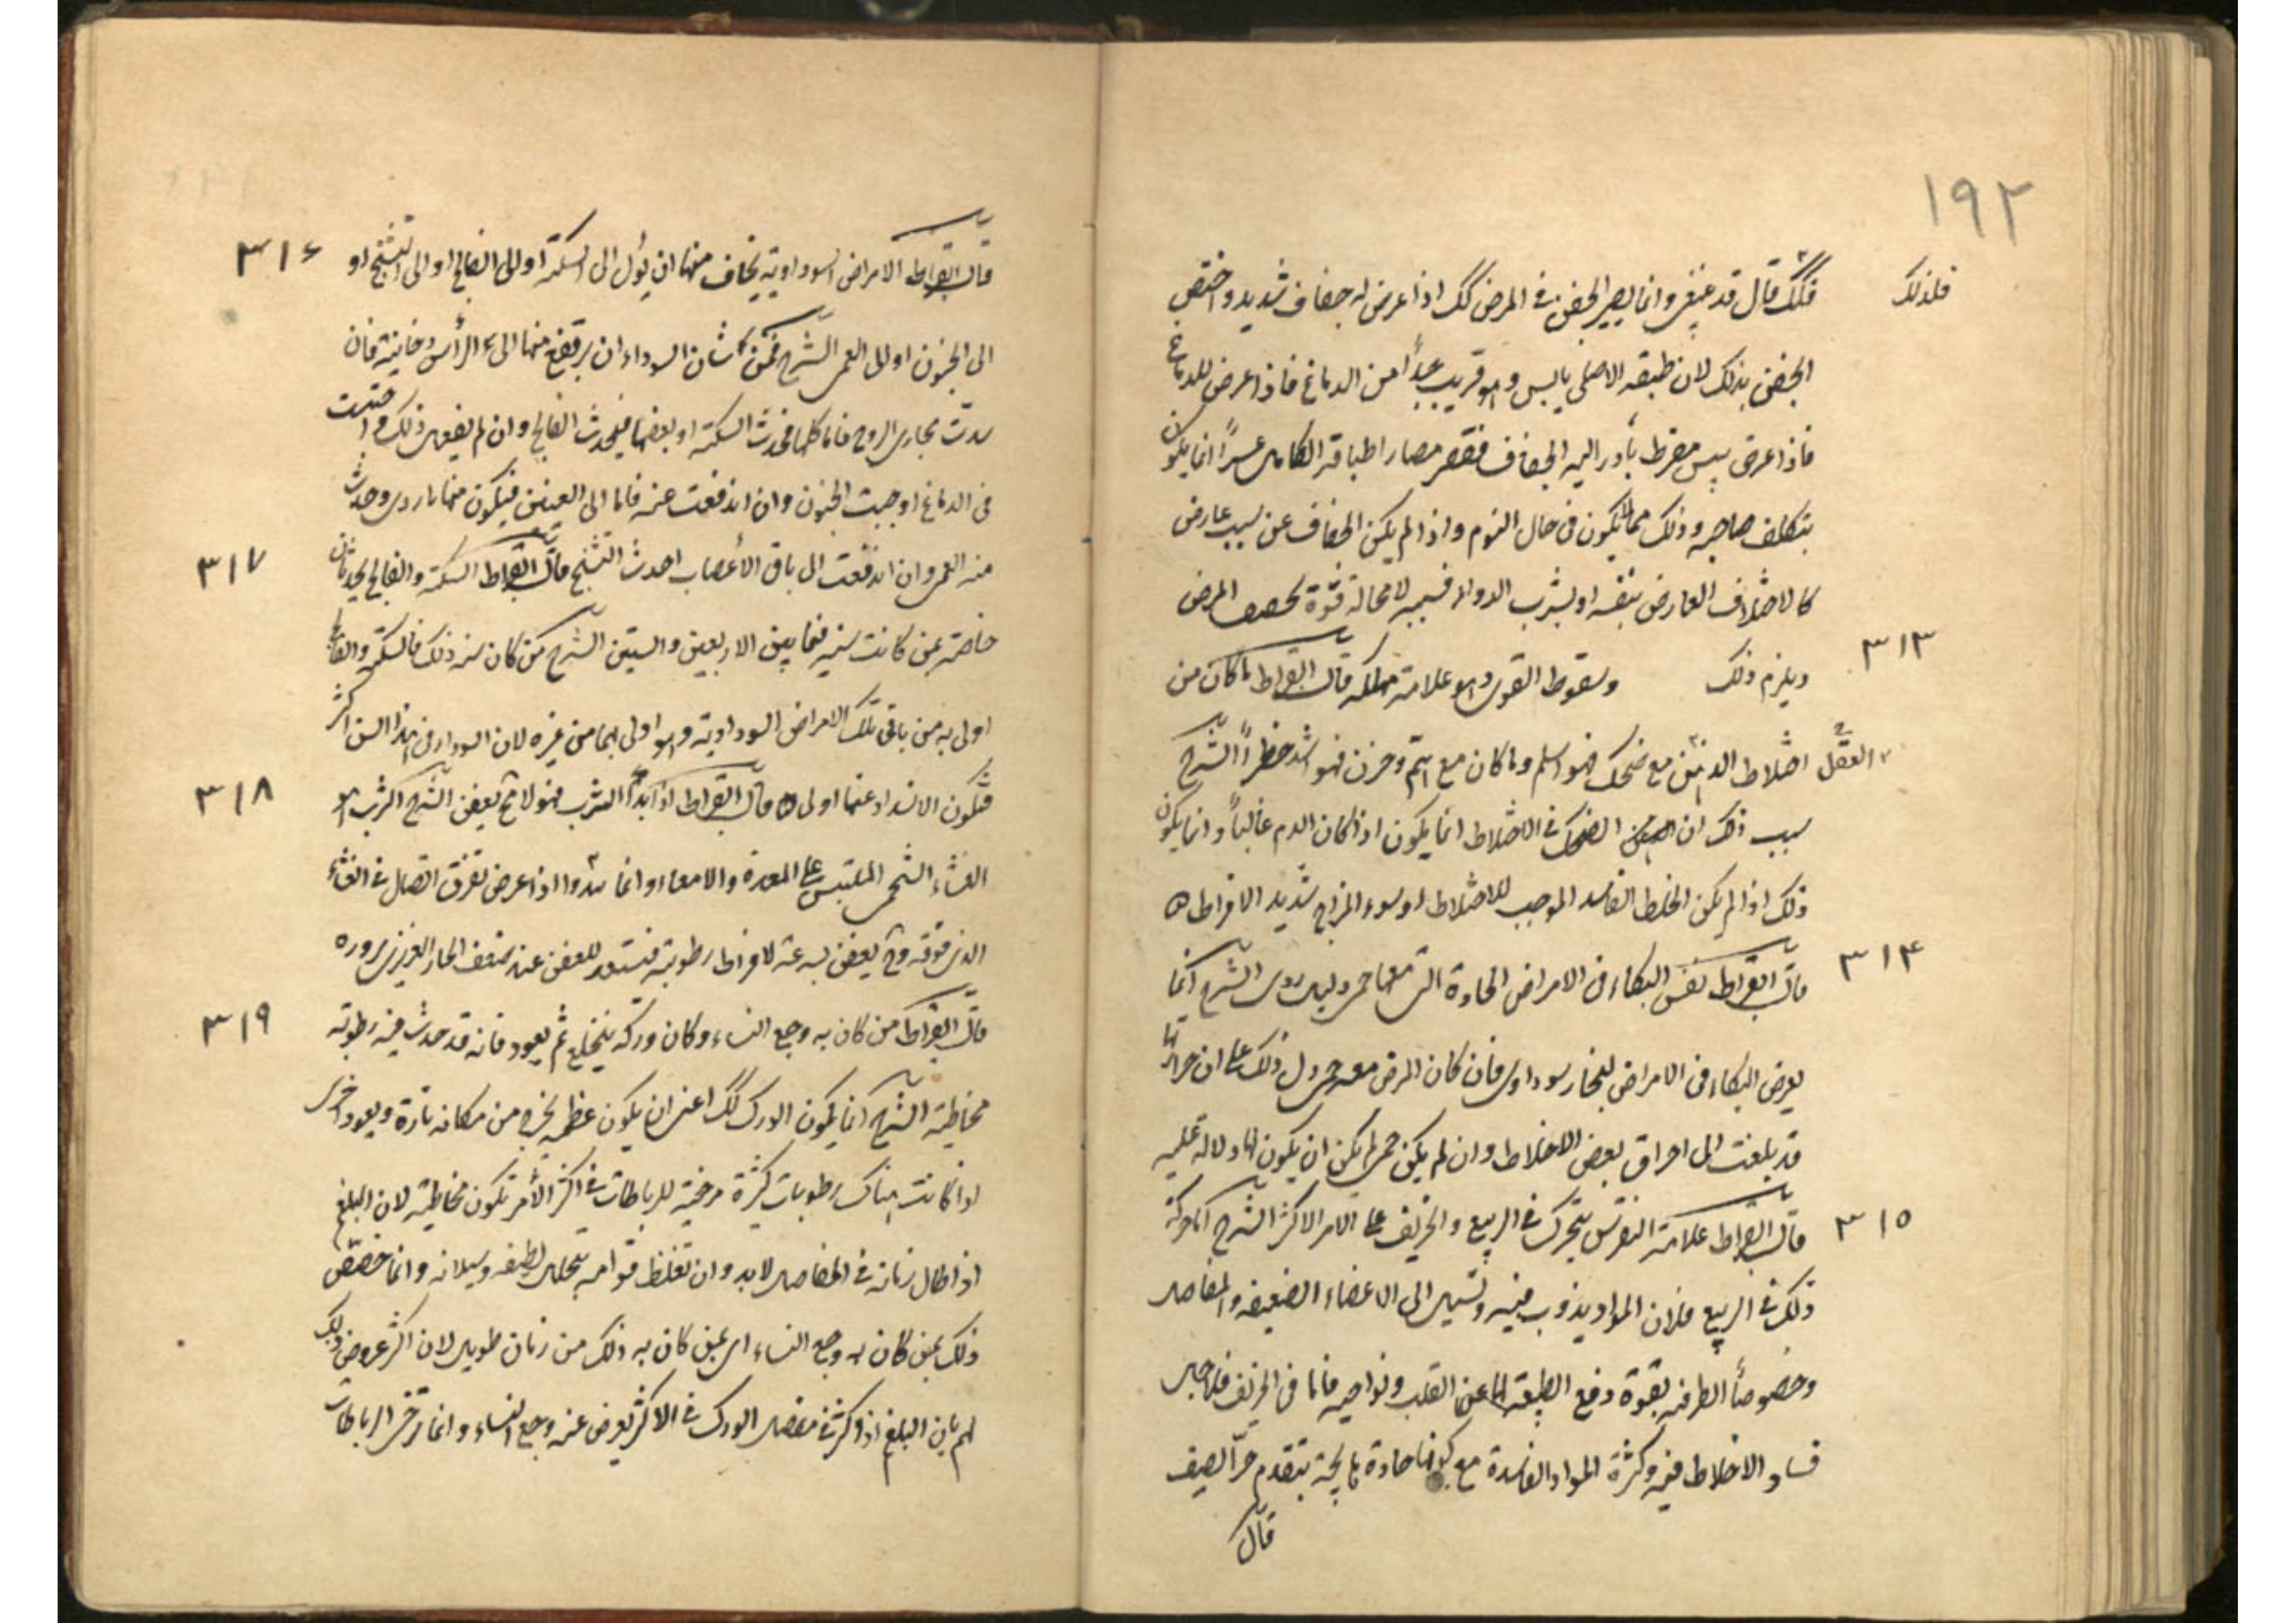 ١٩٢
فلذلك
فلذلك قال قد عنفى وانما يصير الجفن فى المرض كك اذا عرض له جفاف شديد واختص
الجفن بذلك لان طبقه الاصلى يابس وهو قريب جداً من الدماغ فاذا عرض للدماغ
فاذا عرض يبس مفرط بادر اليه الجفاف فقصر فصار اطباقه الكامل عسراً انما يكون
بتكلف صاحبه وذلك مما لا يكون فى حال النوم واذا لم يكن الجفاف عن سبب عارض
كالاختلاف العارض بنفسه او بشرب الدواء فسببه لا محالة قوة المرض
٣١٣
ويلزم ذلك وسقوط القوى وهو علامة مهلكه قال ابقراط ما كان من
العقل
اختلاط الذهن مع ضحك فهو اسلم وما كان مع هم وحزن فهو اشد خطراً الشرح
سبب ذلك ان الضحك فى الاختلاط انما يكون اذا كان الدم غالباً وانما يكون
ذلك اذا لم يكن الخلط الفاسد الموجب للاختلاط او سوء المزاج شديد الافراط ه
٣١٤
قال ابقراط نفس البكاء فى الامراض الحادة التى معها حمى دليل ردى الشرح انما
يعرض البكاء فى الامراض لبخار سوداوى فان كان المرض معه حمى دل ذلك على ان حرارتها
قد بلغت الى احراق بعض الاخلاط وان لم يكن حمى لم يكن ان يكون لها دلالة عليه
٣١٥
قال ابقراط علامة النقرس يتحرك فى الربيع والخريف على الامر الاكثر الشرح اما حركة
ذلك فى الربيع فلان المواد يذوب فيه وتسيل الى الاعضاء الضعيفه والمفاصل
وخصوصاً الطرفيه بقوة دفع الطبيعة لها عن القلب ونواحيه فاما فى الخريف فلاجل
فساد الاخلاط فيه وكثرة المواد الفاسدة مع كونها حادة بتقدم حر الصيف
قال
٣١٦
قال ابقراط الامراض السوداوية يخاف منها ان يؤل الى السكتة او الى الفالج او الى التشنج او
الى الجنون او الى العمى الشرح من شان السوداء ان يرتفع منها الى الرأس دخانية فان
سدت مجارى الروح فاما كلها فحدث السكتة او بعضها فيحدث الفالج وان لم يفعل ذلك و احتبست
فى الدماغ اوجبت الجنون وان اندفعت عنه فاما الى العينين فيكون منها وحدث
٣١٧
منه العمى وان اندفعت الى باقى الأعصاب احدث التشنج قال ابقراط السكتة والفالج يحدثان
خاصة بمن كانت سنه فيما بين الاربعين والستين الشرح من كان سنه ذلك فالسكتة والفالج
اولى به من باقى تلك الامراض السوداوية وهو اولى بهما من غيره لان السوداء فى هذا السن اكثر
٣١٨
فتكون الانسداد عنها اولى ه قال ابقراط اذا بدا الثرب فهو لا محة يعفن الشرح الثرب هو
الغشاء الشحمى الملتبس على المعدة والامعاء وانما يبدوا اذا عرض تفرق اتصال فى الغشاء
الذى فوقه وح يعفن بسرعة لافراط رطوبته فتستعد للعفن عند ضعف الحار الغريزى بروره
٣١٩
قال ابقراط من كان به وجع النساء وكان وركه ينخلع ثم يعود فانه قد حدث فيه رطوبته
مخاطية الشرح انما يكون الورك كك اعنى ان يكون عظمه يخرج من مكانه تارة ويعود اخرى
اذا كانت هناك رطوبات كثيرة مرخية للرباطات فى اكثر الأمر تكون مخاطية لان البلغم
اذا طال زمانه فى المفاصل لابد وان تغلظ قوامه بتحلل لطيفه وسيلانه وانما خصص
ذلك بمن كان به وجع النساء اى بمن كان به ذلك من زمان طويل لان اكثر عروض ذلك
لم باين البلغم اذا كثر فى مفصل الورك فى الاكثر يعرض عنه وجع النساء وانما ترخى الرباطات